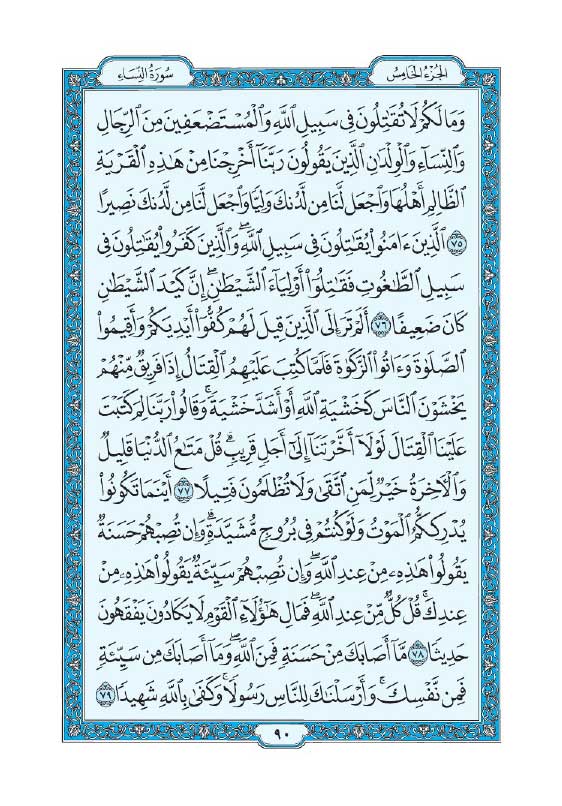 سُورَةُ النِّسَاءِ
الجُزْءُ الخَامِسُ
وَمَا لَكُمْ لَا تُقَٰتِلُونَ فِى سَبِيلِ ٱللَّهِ وَٱلْمُسْتَضْعَفِينَ مِنَ ٱلرِّجَالِ
وَٱلنِّسَآءِ وَٱلْوِلْدَٰنِ ٱلَّذِينَ يَقُولُونَ رَبَّنَآ أَخْرِجْنَا مِنْ هَٰذِهِ ٱلْقَرْيَةِ
ٱلظَّالِمِ أَهْلُهَا وَٱجْعَل لَّنَا مِن لَّدُنكَ وَلِيًّا وَٱجْعَل لَّنَا مِن لَّدُنكَ نَصِيرًا
٧٥ ٱلَّذِينَ ءَامَنُوا۟ يُقَٰتِلُونَ فِى سَبِيلِ ٱللَّهِۖ وَٱلَّذِينَ كَفَرُوا۟ يُقَٰتِلُونَ فِى
سَبِيلِ ٱلطَّٰغُوتِ فَقَٰتِلُوٓا۟ أَوْلِيَآءَ ٱلشَّيْطَٰنِۖ إِنَّ كَيْدَ ٱلشَّيْطَٰنِ
كَانَ ضَعِيفًا ٧٦ أَلَمْ تَرَ إِلَى ٱلَّذِينَ قِيلَ لَهُمْ كُفُّوٓا۟ أَيْدِيَكُمْ وَأَقِيمُوا۟
ٱلصَّلَوٰةَ وَءَاتُوا۟ ٱلزَّكَوٰةَ فَلَمَّا كُتِبَ عَلَيْهِمُ ٱلْقِتَالُ إِذَا فَرِيقٌ مِّنْهُمْ
يَخْشَوْنَ ٱلنَّاسَ كَخَشْيَةِ ٱللَّهِ أَوْ أَشَدَّ خَشْيَةًۚ وَقَالُوا۟ رَبَّنَا لِمَ كَتَبْتَ
عَلَيْنَا ٱلْقِتَالَ لَوْلَآ أَخَّرْتَنَآ إِلَىٰٓ أَجَلٍ قَرِيبٍۗ قُلْ مَتَٰعُ ٱلدُّنْيَا قَلِيلٌ
وَٱلْءَاخِرَةُ خَيْرٌ لِّمَنِ ٱتَّقَىٰ وَلَا تُظْلَمُونَ فَتِيلًا ٧٧ أَيْنَمَا تَكُونُوا۟
يُدْرِككُّمُ ٱلْمَوْتُ وَلَوْ كُنتُمْ فِى بُرُوجٍ مُّشَيَّدَةٍۗ وَإِن تُصِبْهُمْ حَسَنَةٌ
يَقُولُوا۟ هَٰذِهِۦ مِنْ عِندِ ٱللَّهِۖ وَإِن تُصِبْهُمْ سَيِّئَةٌ يَقُولُوا۟ هَٰذِهِۦ مِنْ
عِندِكَۚ قُلْ كُلٌّ مِّنْ عِندِ ٱللَّهِۖ فَمَالِ هَٰٓؤُلَآءِ ٱلْقَوْمِ لَا يَكَادُونَ يَفْقَهُونَ
حَدِيثًا ٧٨ مَّآ أَصَابَكَ مِنْ حَسَنَةٍ فَمِنَ ٱللَّهِۖ وَمَآ أَصَابَكَ مِن سَيِّئَةٍ
فَمِن نَّفْسِكَۚ وَأَرْسَلْنَٰكَ لِلنَّاسِ رَسُولًاۚ وَكَفَىٰ بِٱللَّهِ شَهِيدًا ٧٩
٩٠